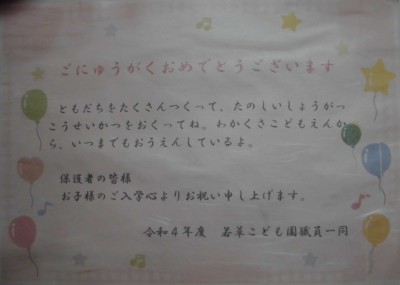 ごにゅうがくおめでとうございます
ともだちをたくさんつくって、たのしいしょうがっ
こうせいかつをおくってね。わかくさこどもえんか
ら、いつまでもおうえんしているよ。
保護者の皆様
お子様のご入学心よりお祝い申し上げます。
令和４年度　若草こども園職員一同